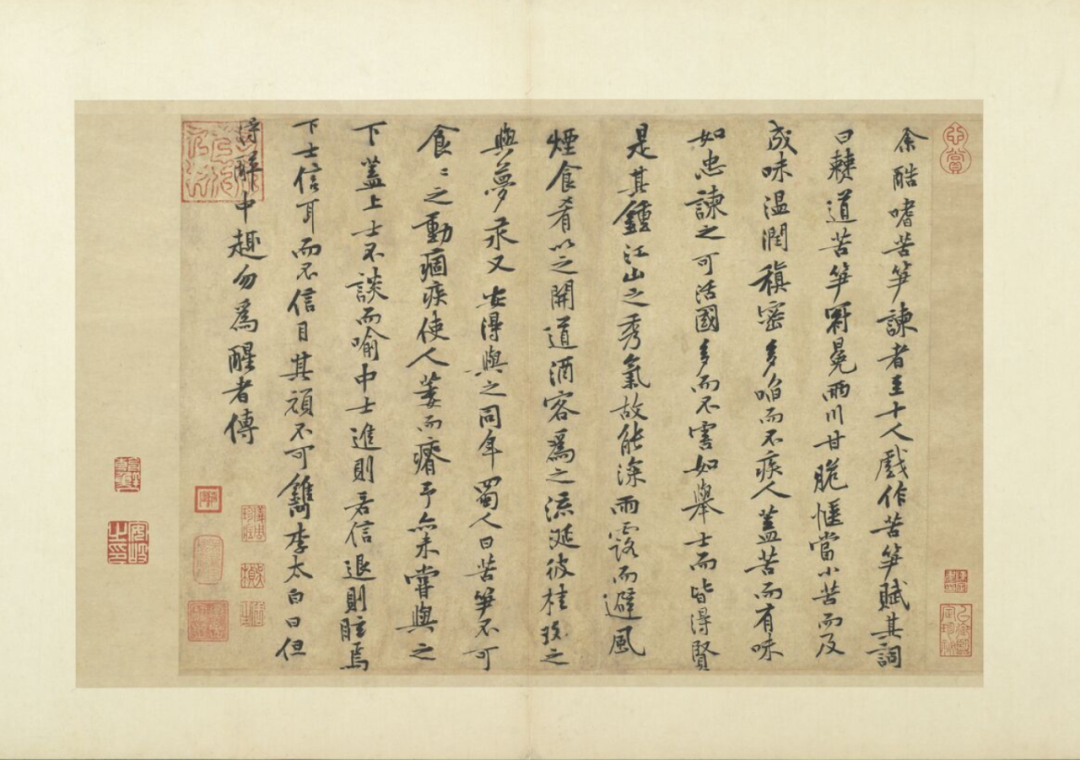 余酷嗜苦笋諫者至十人戲作苦笋賦其詞
曰僰道苦笋冠冕兩川甘脆愜當小苦而及
成味温潤稹密多啗而不疾人蓋苦而有味
如忠諫之可活國多而不害如舉士而皆得賢
是其鍾江山之秀氣故能深雨露而避風
煙食肴以之開道酒客爲之流涎彼桂玫之
與夢汞又安得與之同年蜀人曰苦笋不可
食食之動痼疾使人萎而瘠予亦未嘗與之
下蓋上士不談而喻中士進則若信退則眩焉
下士信耳而不信目其頑不可鐫李太白曰但
得醉中趣勿爲醒者傳